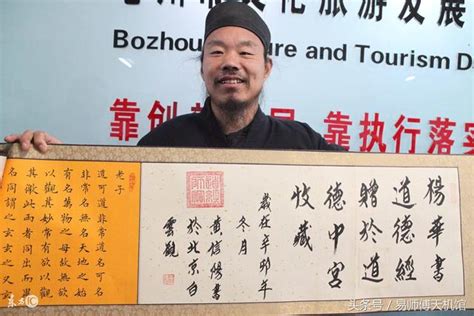 化旅游发展
Bozhou ure and Tourism De
靠创 民 靠执行落实
楊華書
道德經
贈於道
德中宮
收藏
歲在辛卯年
冬月
黄信陽書
於北京白
雲觀
老子
道可道非常道名可
名非常名無名天地之始
有名萬物之母故常無欲
以觀其妙常有欲以觀
其徼此兩者同出而異
名同謂之玄玄之又
东方IC
头条号／易师傅天机馆